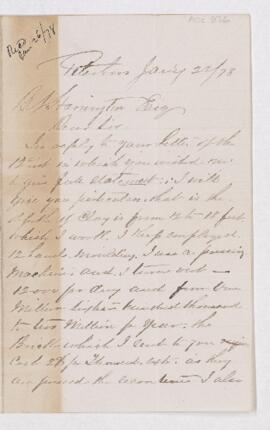 Recd
Jany 26/78
Jany 22/78
B J Harrington Esq
Dear Sir
In reply to your letter of the
in which you wished me
to give full statement. I will
give you particulars, that is the
depth of Clay is from 12 to 18 feet
which I work. I keep employed
12 hands moulding, I use a pressing
Machine and I turn out
12000 per Day and from One
Million eight hundred thousand
to two Million per Year, the
Bricks which I sent to you
Cost per Thousand. as they
are pressed the I also